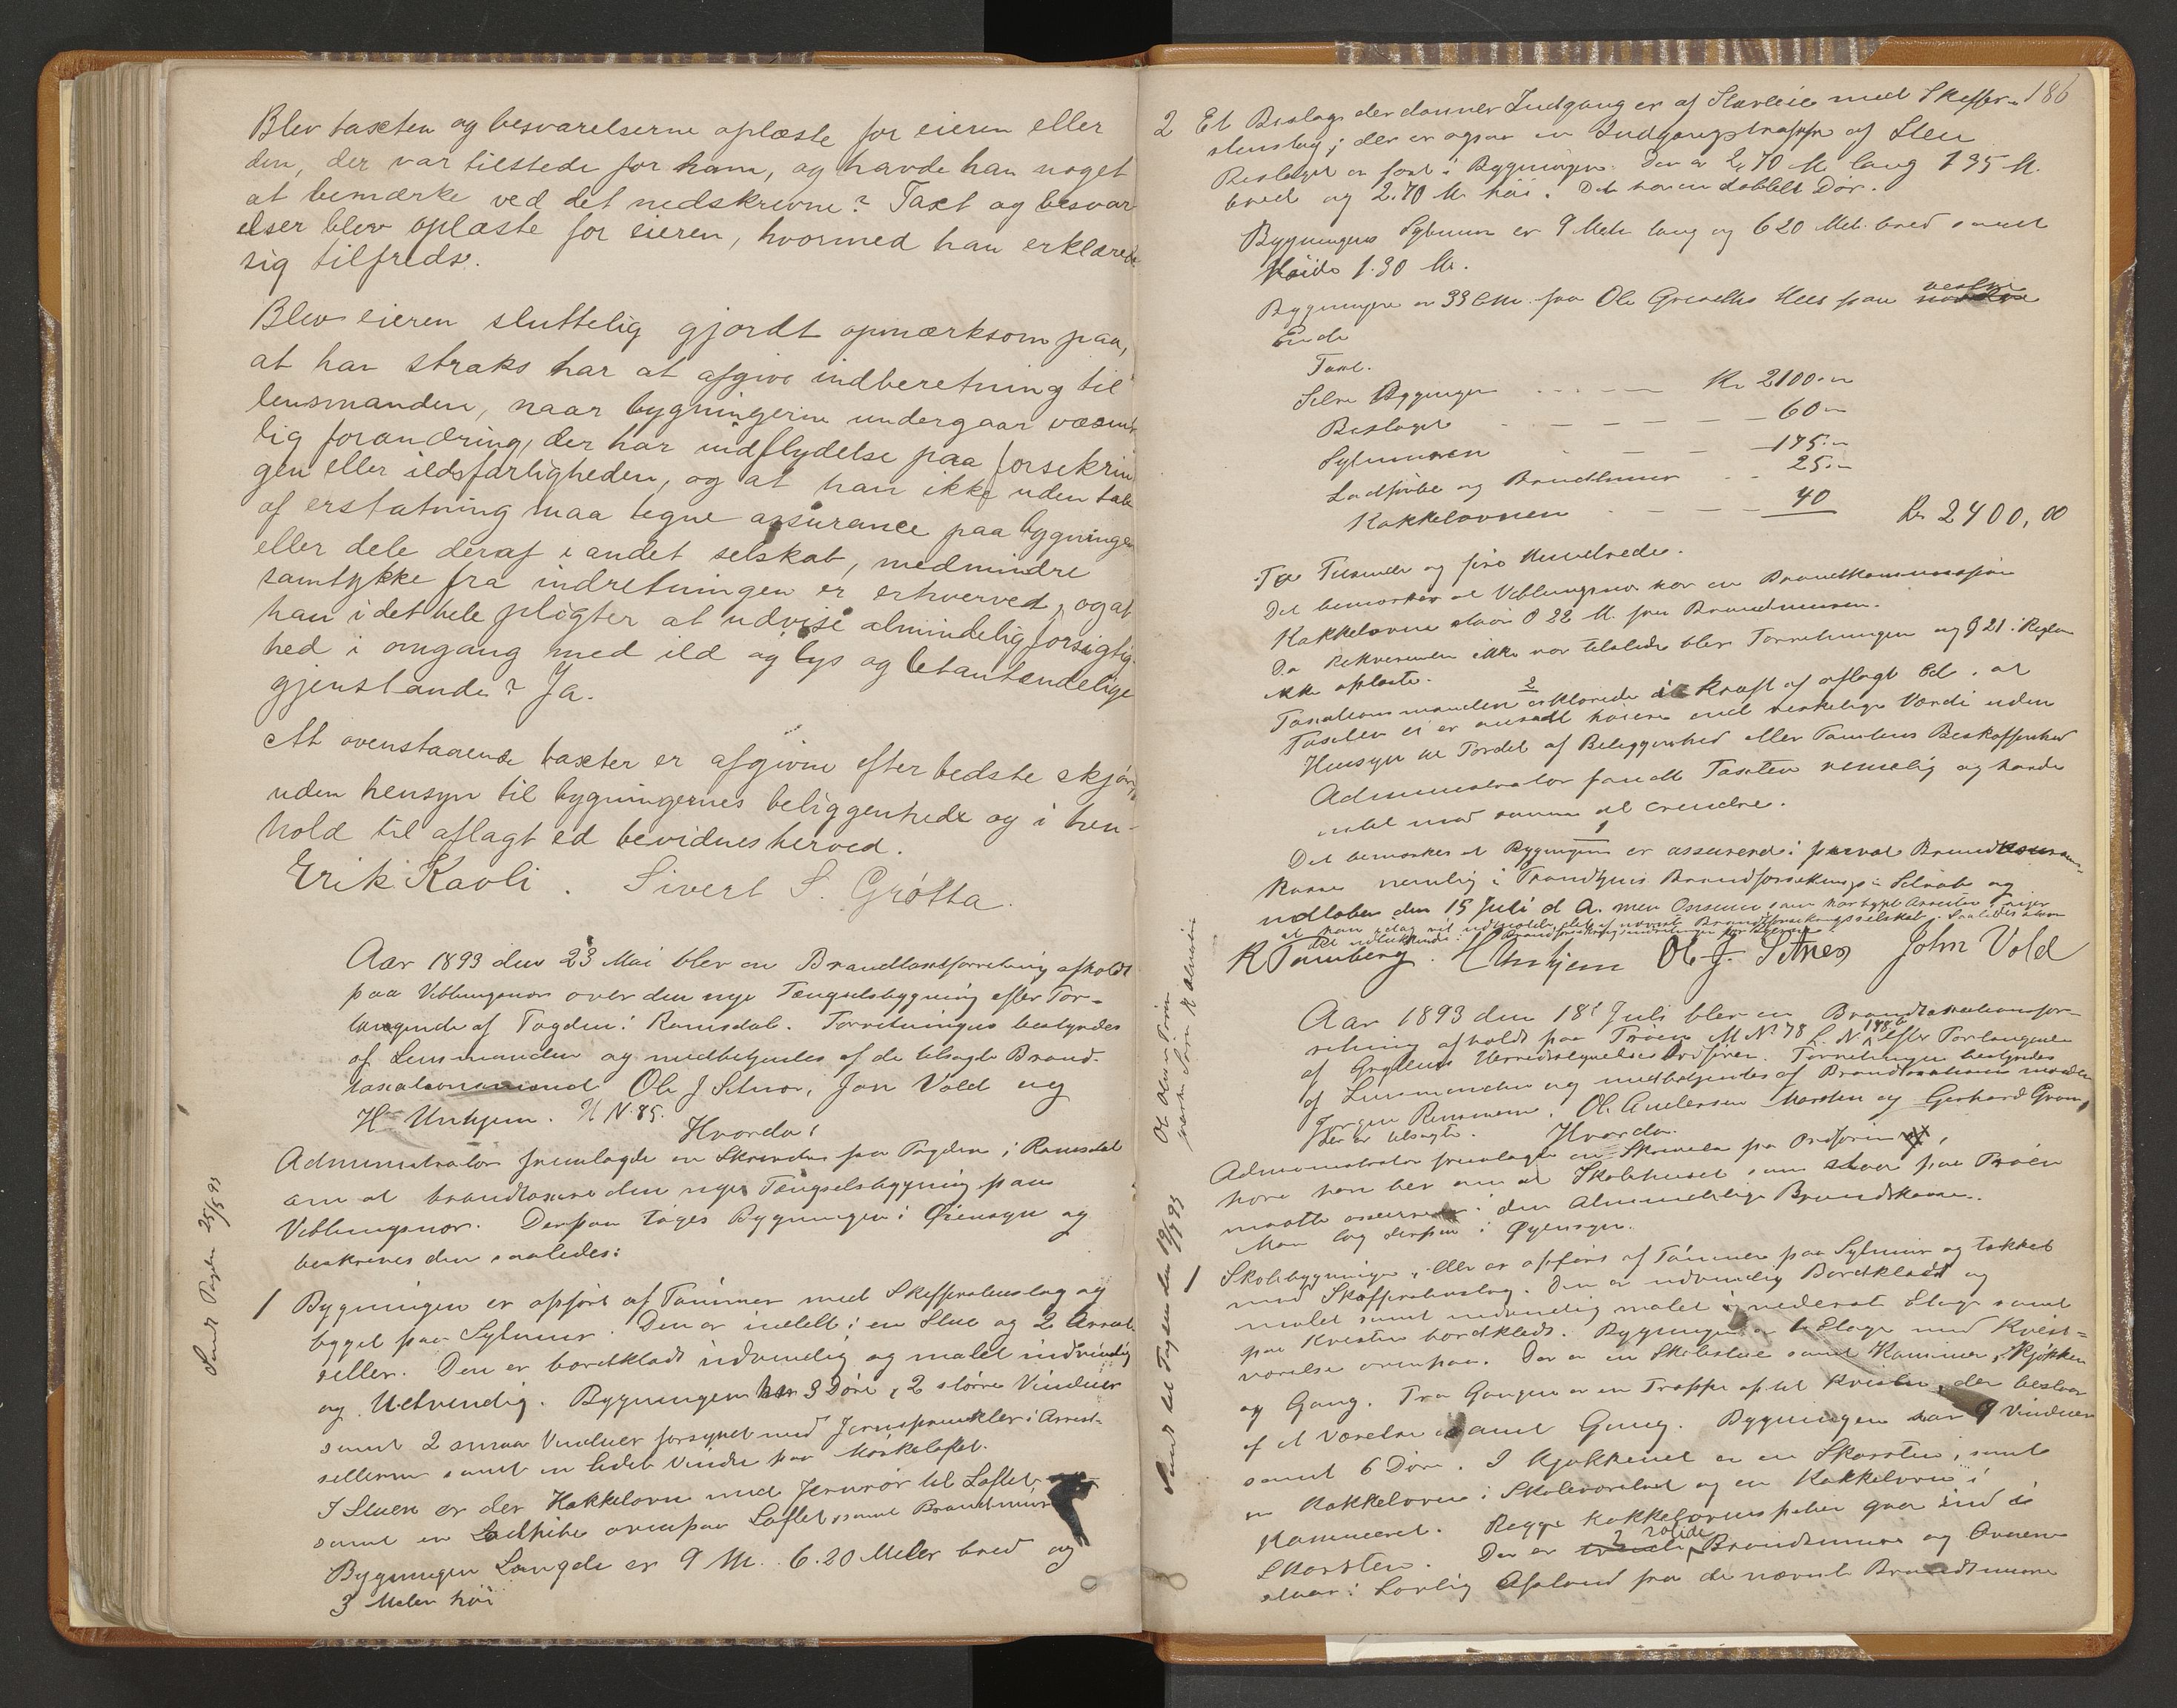 Blev taxten og besvarelserne oplæste for eieren eller
den, der var tilstede for ham, og havde han noget
at bemærke ved det nedskrevne? Taxt og besvar
elser blev oplæste for eieren, hvormed han erklæred
sig tilfreds.
Blev eieren sluttelig gjordt opmærksom paa,
at han straks har at afgive indberetning til
lensmanden, naar bygningerne undergaar væsent
lig forandring, der har indflydelse paa forsikrin
gen eller ildsfarligheden, og at han ikke uden tab
af erstatning maa tegne assurance paa bygningen
eller dele deraf i andet selskab, medmindre
samtykke fra indretningen er erhvervet, og at
han i det hele pligter at udvise almindelig forsigtig-
hed i omgang med ild og lys og letantendelige
gjenstande? Ja.
At ovenstaaende taxter er afgivne efter bedste skjøn,
uden hensyn til bygningernes beliggenhede og i hen-
hold til aflagt ed bevidnes herved.
Erik Kavli. Sivert S. Grøtta.
Aar 1893 den 23 Mai blev en Brandtaxtforretning afholdt
paa Veblungsnes over den nye Fængselsbygning efter For-
langende af Fogden i Romsdal. Forretningen bestyredes
af Lensmanden og medbetjentes af de tilsagte Brand-
taxationsmænd Ole J Setnes, Jon Vold og
H Unhjem. M N. 85.
Hvorda:
Administrator fremlagde en Skrivelse fra Fogden i Romsdal
om at brandtaxere den nye Fængselsbygning paa
Veblungsnes. Derpaa toges Bygningen i Øiensyn og
beskrives den saaledes:
1 Bygningen er opført af Tømmer med Skifferstenstag og
bygget paa Sylmur. Den er indelt i en Stue og 2 Arrest
celler. Den er bordklædt udvendig og malet indvendig
og Udvendig. Bygningen har 3 Døre, 2 større Vinduer
samt 2 smaa Vinduer forsynet med Jernsprinkler i Arrest-
cellerne samt en lidet Vindu paa Mørkeloftet.
I Stuen er der Kakkelovn med Jernrør til Loftet
samt en Ladpibe ovenpaa Loftet samt Brandmur
Bygningen Længde er 9 M. 6.20 Meter bred og
3 Meter høi
Sendt Fogden 25/5 93
186
2 Et Beslag der danner Indgang er af Staveie med Skiffer-
stenstag; der er ogsaa en Indgangstrappe af Sten
Beslaget er fast i Bygningen. Den er 2,70 M. lang 1 35 M.
bred og 2.70 M. høi. Det har en dobbelt Dør.
Bygningens Sylmur er 9 Meter lang og 6 20 Met. bred samt
Høide 1.30 M.
Bygningen er 33 Cm. fra Ole Hus paa vestre
Ende
Taxt.
Selve Bygningen Kr 2100.-
Beslaget 60-
Sylmuren 175.-
Ladpibe og Brandmur 25.-
Kakkelovnen 40 Kr 2400,00
To Tusende og fire Hundrede.
Det bemærkes at Veblungsnes har en Brandkommission
Kakkelovnen staar 0 22 M. fra Brandmuren.
Da Rekvirenten ikke var tilstede blev Forretningen og § 21 i Reglem
ikke oplæste.
Taxationsmændene erklærede i Kraft af aflagt Ed, at
Taxten ei er ansadt høiere end virkelige Værdi uden
Hensyn til Fordel af Beliggenhed eller Tomtens Beskaffenhed
Administrator fandt Taxten rimelig og havde
intet mod samme at erindre.
Det bemærkes at Bygningen er assureret i privat Brand
Kasse nemlig i Trondhjems Brandforsikrings-Selskab og
udløber den 15 Juli d A.
Unhjem Ole J. Setnes John Vold
Aar 1893 den 18de Juli blev en Brandtaxationsfor-
retning afholdt paa Trøen M No 78 L. N 148 b efter Forlangende
af Gryttens Herredstyrelses Ordfører. Forretningen bestyredes
af Lensmanden og medbetjentes af Brandtaxationsmænden
Jørgen, Ole Andersen Marsten og Gerhard Gram,
der er tilsagte. Hvorda:
Administrator fremlagde en Skrivelse fra Ordføreren,
hvori han ber om at Skolehuset som staar paa Trøen
maatte assureres i den Almindelige Brandkasse.
Man tog derpaa i Øyensyn.
1 Skolebygningen, der er opført af Tømmer paa Sylmur og tækket
med Skifferstenstag. Den er udvendig Bordklædt og
malet samt indvendig malet i nederste Etage samt
paa Kvisten bordklædt. Bygningen er 1 Etage med Kvist-
værelse ovenpaa. Der er en Skolestue samt Kammer, Kjøkken
og Gang. Fra Gangen er en Trappe op til Kvisten, der bestaar
af et Værelse samt Gang. Bygningen har 9 Vinduer
samt 6 Døre. I Kjøkkenet er en Skorsten, samt
en Kakkelovn i Skoleværelset og en Kakkelovn i
Kammeret. Begge Kakkelovnspiber gaar ind i
Skorsten. Der er 2 solide Brandmure og Ovnene
staar i Lovlig Afstand fra de nærmeste Brandmure
Sendt til Fogden den 19/7 93